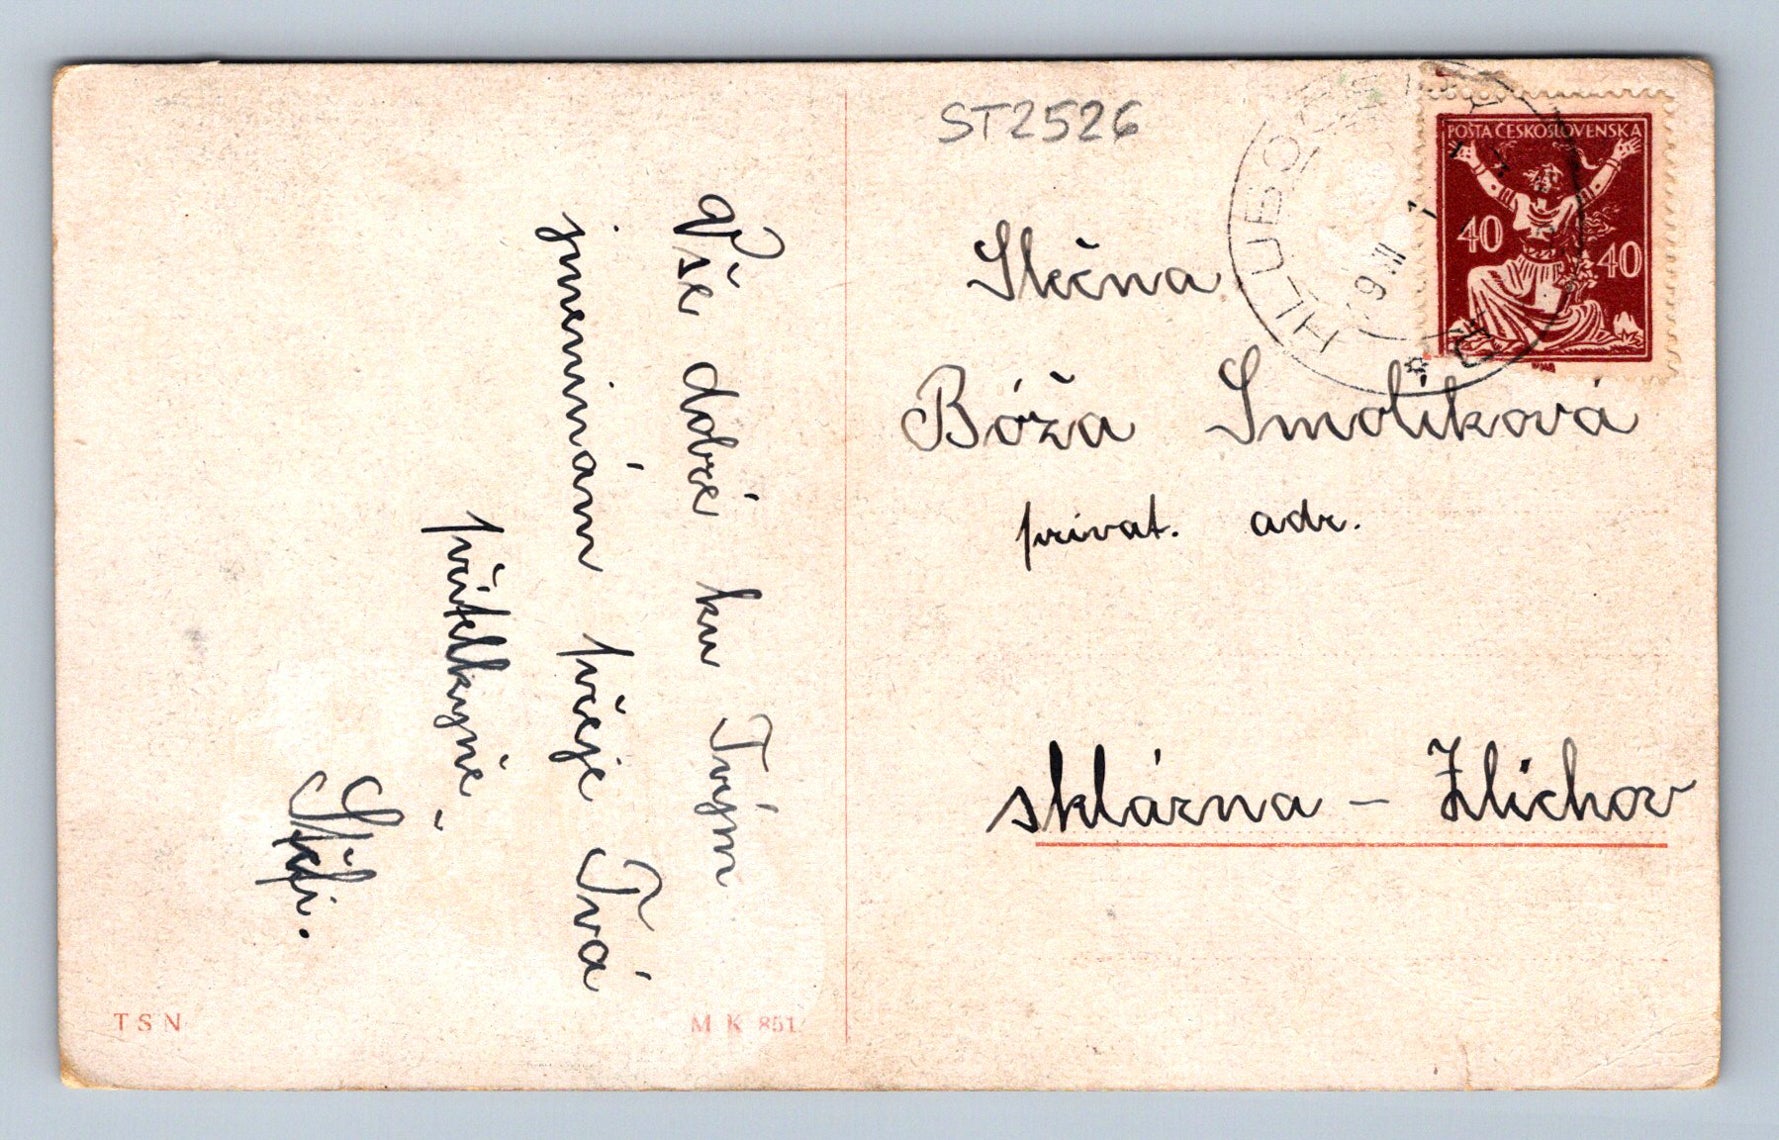 ST2526
POŠTA ČESKOSLOVENSKA
40
40
HLUBOČE
Slečna
Bóža Smolíková
privat. adr.
sklárna – Zlíchov
Vše dobré ku Tvým
jmeninám přeje Tvá
přítelkyně
Štefi.
TSN
M K 851